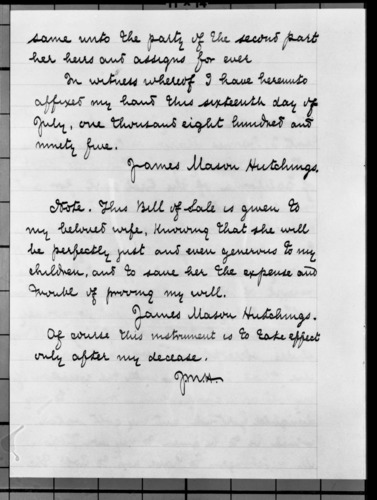 same unto the party of the second part
her heirs and assigns for ever
In witness whereof I have hereunto
affixed my hand this sixteenth day of
July, one thousand eight hundred and
ninety five.
James Mason Hutchings.
Note. This Bill of Sale is given to
my beloved wife, Knowing that she will
be perfectly just and even generous to my
children, and to save her the expense and
trouble of proving my will.
James Mason Hutchings.
Of course this instrument is to take effect
only after my decease.
JMH.